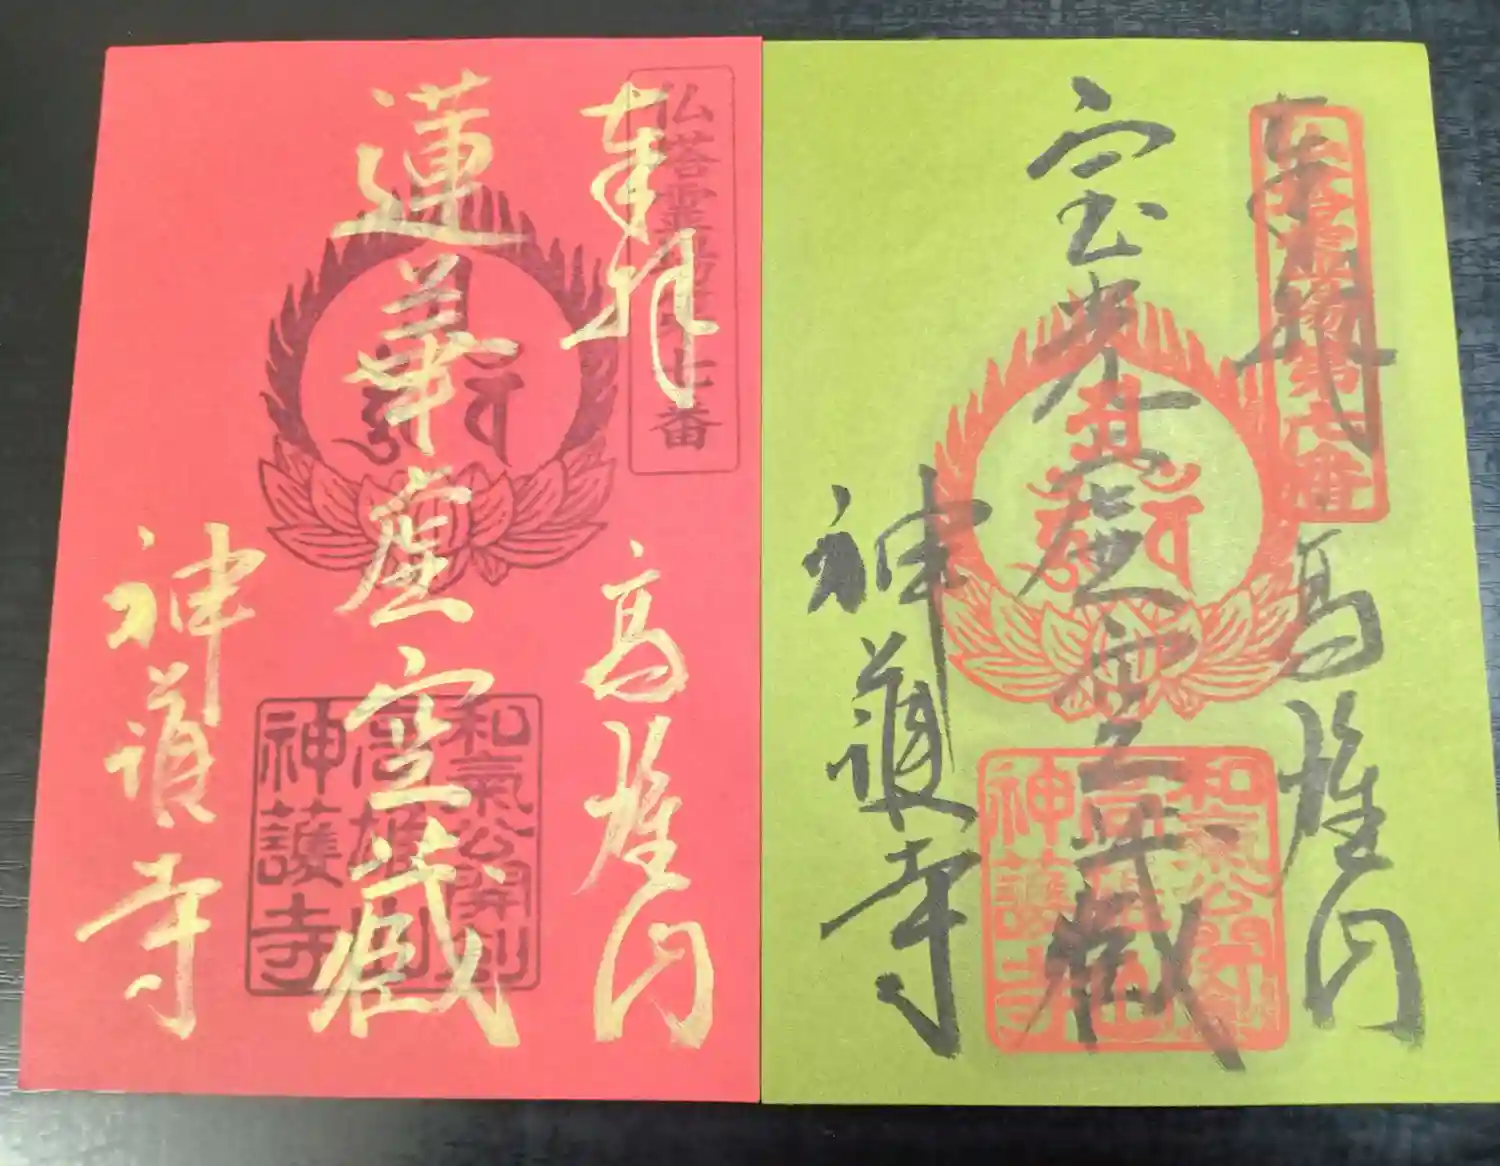 仏塔霊場第七番
奉拝
高雄山
蓮華虚空蔵
神護寺
和氣公開創
高雄山
神護寺
仏塔霊場第七番
奉拝
高雄山
宝光虚空蔵
神護寺
和氣公開創
高雄山
神護寺